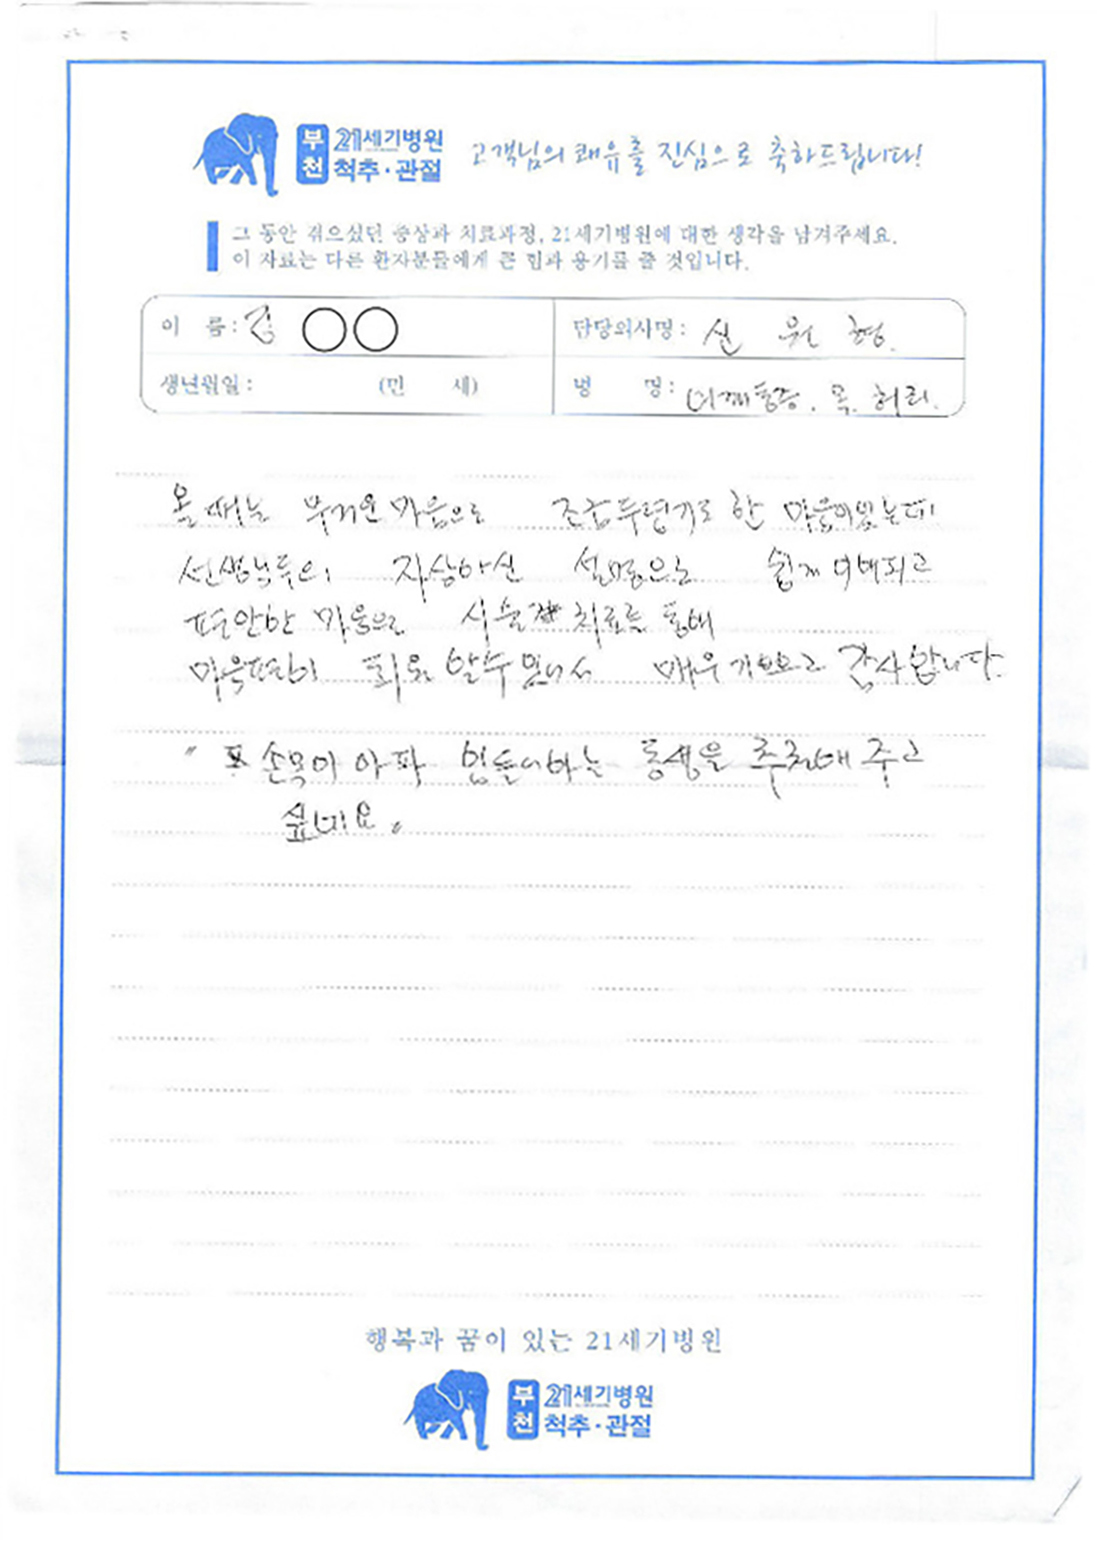 부천 21세기병원 척추·관절 고객님의 쾌유를 진심으로 축하드립니다!
그 동안 겪으셨던 증상과 치료과정, 21세기병원에 대한 생각을 남겨주세요.
이 자료는 다른 환자분들에게 큰 힘과 용기를 줄 것입니다.
이 름: 김 ○○ 담당의사명: 신 원 형.
생년월일: (만 세) 병 명: 어깨통증. 목. 허리.
올때는 무거운 마음으로 조금두렵기도 한 마음이있는데
선생님들의 자상하신 설명으로 쉽게 이해되고
편안한 마음으로 시술 치료를 통해
마음편히 치료 할수 있어서 매우 기쁘고 감사합니다.
" 손목이 아파 힘들어하는 동생을 추천해 주고
싶네요.
행복과 꿈이 있는 21세기병원
부천 21세기병원 척추·관절